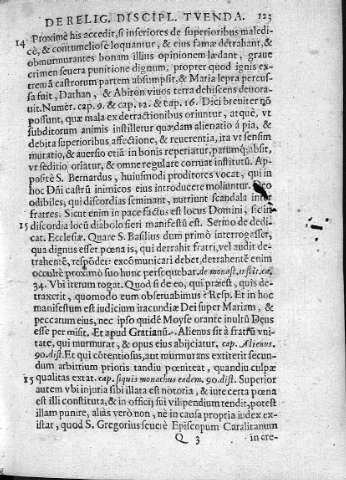 DE RELIG. DISCIPL. TVENDA. 123
14 Proximè his accedit, si inferiores de superioribus maledi-
cè, & contumeliosè loquantur, & eius famæ detrahant, &
obmurmurantes bonam illius opinionem lædant, graue
crimen seuera punitione dignum, propter quod ignis ex-
tremã castrorum partem absumpsit, & Maria lepra percus-
sa fuit, Dathan, & Abiron viuos terra dehiscens deuora-
uit. Numer. cap. 9. & cap. 12. & cap. 16. Dici breuiter nõ
possunt, quæ mala ex detractionibus oriuntur, atque, vt
subditorum animis instilletur quædam alienatio á pia, &
debita superioribus affectione, & reuerentia, ita vt sensim
mutatio, & auersio etiã in bonis reperiatur, parumq; absit,
vt seditio oriatur, & omne regulare corruat institutũ. Ap-
positè S. Bernardus, huiusmodi proditores vocat, qui in
hoc Dñi castrũ inimicos eius introducere moliuntur.
odibiles, qui discordias seminant, nutriunt scandala inter
fratres. Sicut enim in pace factus est locus Domini, sic in
15 discordia locũ diabolo fieri manifestũ est. Sermo de dedi-
cat. Ecclesiæ. Quare S. Basilius dum primò interrogasset,
qua dignus esset pœna is, qui detrahit fratri, vel audit de-
trahentẽ, respõdet: excõmunicari debet, detrahentẽ enim
occultè proximo suo hunc persequebar. de monast.
34. Vbi iterum rogat. Quod si de eo, qui præest, quis de-
traxerit, quomodo eum obseruabimus? Resp. Et in hoc
manifestum est iudicium iracundiæ Dei super Mariam, &
peccatum eius, nec ipso quidẽ Moyse orante inultũ Deus
esse permisit. Et apud Gratianũ. Alienus sit à fratrũ vni-
tate, qui murmurat, & opus eius abijciatur, cap. Alienus.
90. dist. Et qui cõtentiosus, aut murmurans extiterit secun-
dum arbitrium prioris tandiu pœniteat, quandiu culpæ
15 qualitas extat. cap. siquis monachus eadem. 90. dist. Superior
autem vbi iniuria sibi illata est notoria, & iure certa pœna
est illi constituta, & in officij sui vilipendium tendit, potest
illam punire, aliàs verò non, nè in causa propria iudex exi-
stat, quod S. Gregorius Episcopum Caralitanum
Q 3 in cre-